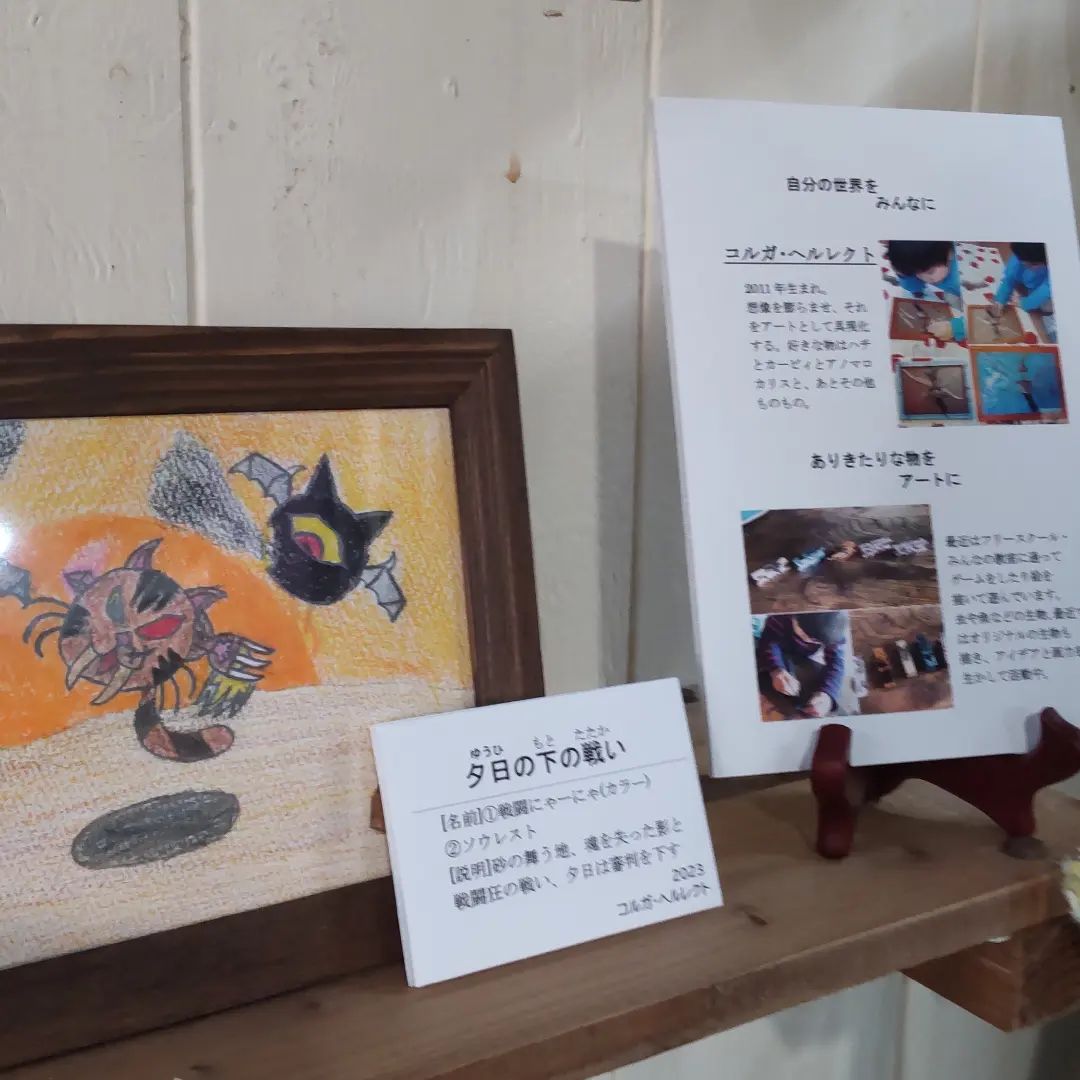 自分の世界を
みんなに
コルガ・ヘルレクト
2011年生まれ。
想像を膨らませ、それ
をアートとして具現化
する。好きな物はハチ
とカービィとアノマロ
カリスと、あとその他
ものもの。
ありきたりな物を
アートに
最近はフリースクール・
みんなの教室に通って
ゲームをしたり絵を
描いて遊んでいます。
虫や魚などの生物、最近
はオリジナルの生物も
描き、アイデアと画力を
生かして活動中。
ゆうひ もと たたか
夕日の下の戦い
[名前]①戦闘にゃーにゃ(カラー)
②ソウレスト
[説明]砂の舞う地、魂を失った影と
戦闘狂の戦い、夕日は審判を下す
2023
コルガ・ヘルレクト